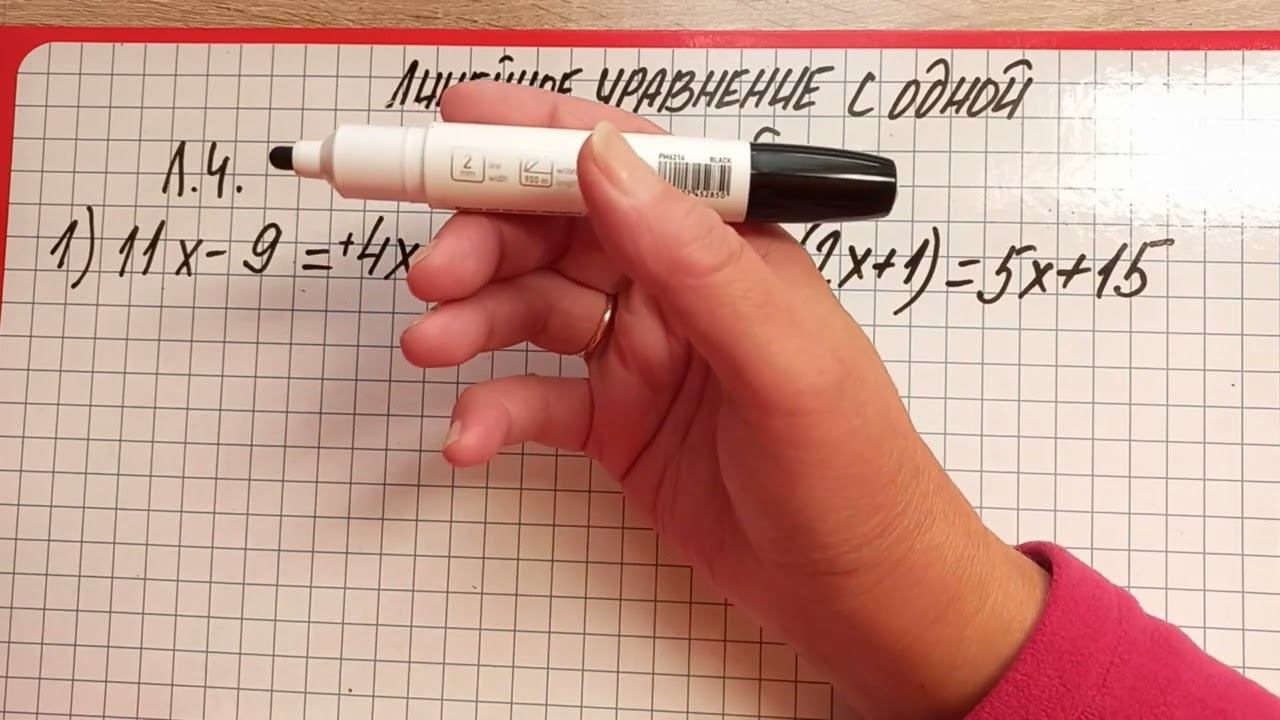 УРАВНЕНИЕ С ОДНОЙ
1.4.
1) 11x-9=+4x
(2x+1)=5x+15
2 mm line width
900 m
PM6214 BLACK